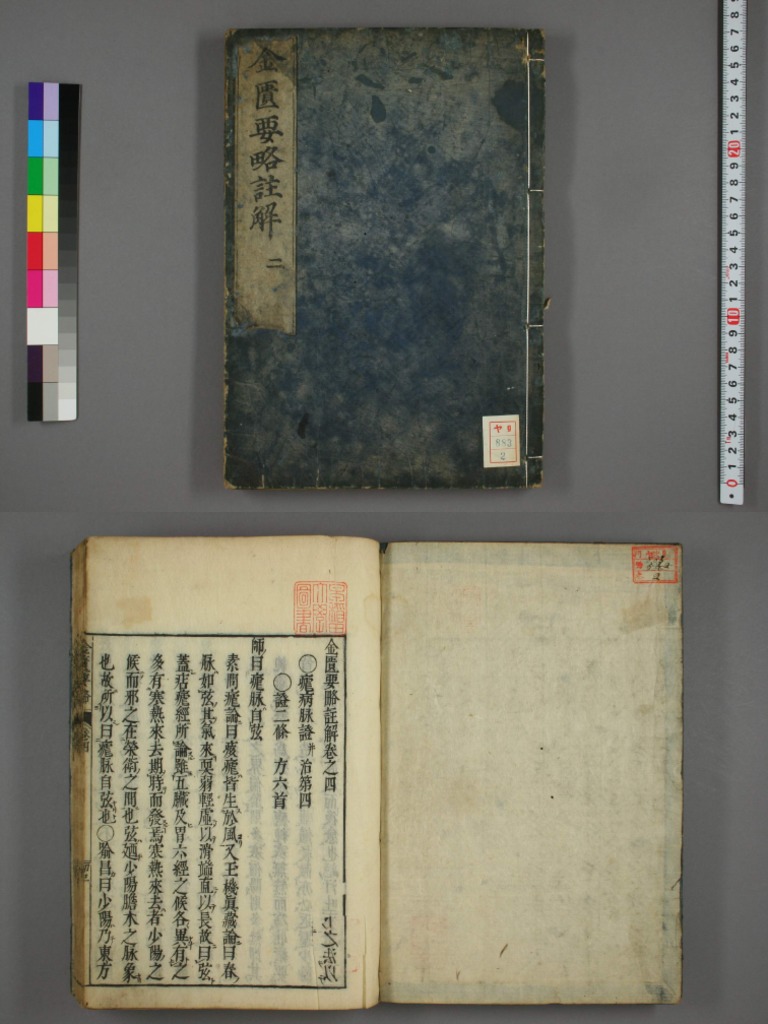 金匱要略註解
二
ヤ9
883
2
金匱要略註解卷之四
○瘧病脉證并治第四
○證二條 方六首
師曰瘧脉自弦
素問瘧論曰痎瘧皆生於風又玉機眞藏論曰春
脉如弦其氣來耎弱輕虛以滑端直以長故曰弦
蓋痁瘧經所論雖五臟及胃六經之候各異有之
多有寒熱來去期時而發焉寒熱來去者少陽之
候而邪之在榮衛之間也弦廼少陽膽木之脉象
也故所以曰瘧脉自弦也○喻昌曰少陽乃東方